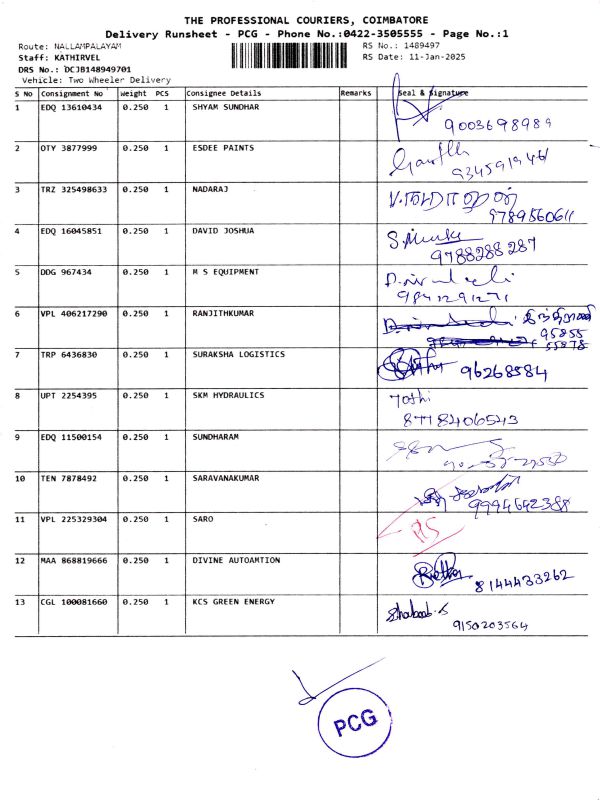 THE PROFESSIONAL COURIERS, COIMBATORE
Delivery Runsheet - PCG - Phone No.:0422-3505555 - Page No.:1
Route: NALLAMPALAYAM
RS No.: 1489497
Staff: KATHIRVEL
RS Date: 11-Jan-2025
DRS No.: DCJB148949701
Vehicle: Two Wheeler Delivery
S No Consignment No Weight PCS Consignee Details Remarks Seal & Signature
1 EDQ 13610434 0.250 1 SHYAM SUNDHAR
9003698989
2 OTY 3877999 0.250 1 ESDEE PAINTS
3 TRZ 325498633 0.250 1 NADARAJ
9789560611
4 EDQ 16045851 0.250 1 DAVID JOSHUA
9788288287
5 DDG 967434 0.250 1 M S EQUIPMENT
9841291271
6 VPL 406217290 0.250 1 RANJITHKUMAR
95855
55878
7 TRP 6436830 0.250 1 SURAKSHA LOGISTICS
96268584
8 UPT 2254395 0.250 1 SKM HYDRAULICS
8718406543
9 EDQ 11500154 0.250 1 SUNDHARAM
10 TEN 7878492 0.250 1 SARAVANAKUMAR
9994642388
11 VPL 225329304 0.250 1 SARO
12 MAA 868819666 0.250 1 DIVINE AUTOAMTION
8144433262
13 CGL 100081660 0.250 1 KCS GREEN ENERGY
9150203564
PCG